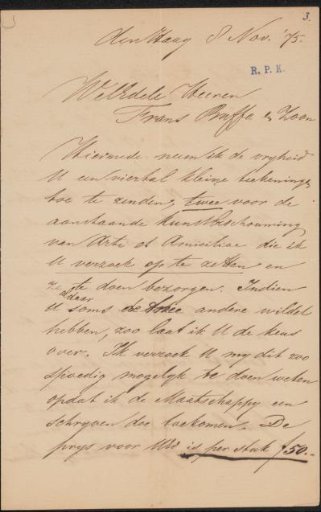 3.
den Haag 8 Nov. '75.
R. P. K.
WelEdele Heeren
Frans Buffa & Zoon
Hiermede neem ik de vryheid
U een viertal kleine teekeningen
toe te zenden, twee voor de
aanstaande Kunstbeschouwing
van Arti et Amicitiae die ik
U verzoek op te zetten en
te doen bezorgen. Indien
U soms andere wildet
hebben, zoo laat ik U de keus
over. Ik verzoek U my dit zoo
spoedig mogelyk te doen weten
opdat ik de Maatschappy een
schryven doe toekomen. De
prys voor UEd is per stuk ƒ50.-